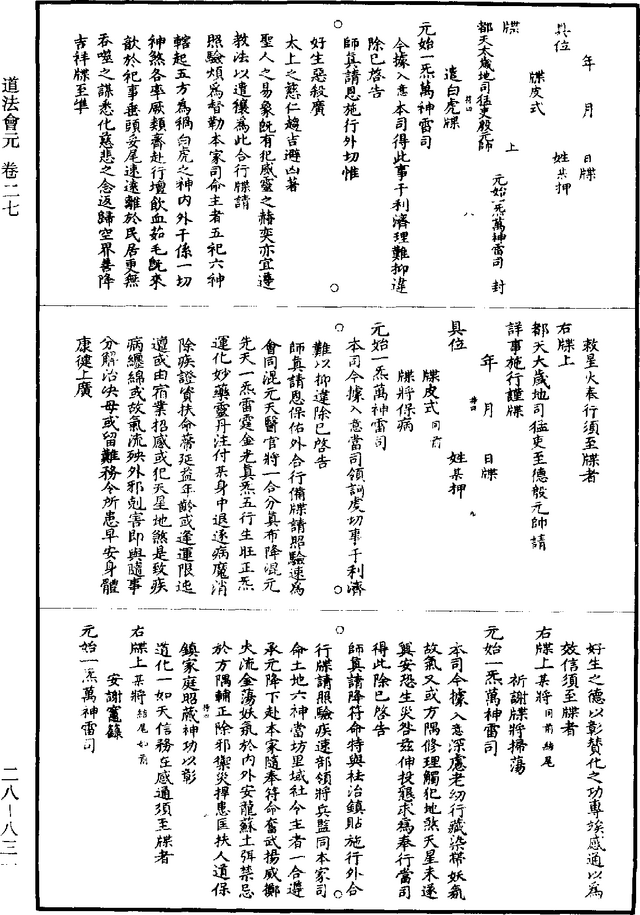 道法會元　卷二七
年　月　日牒
具位　姓某押
牒皮式
牒　上
都天太歲地司猛吏殷元師　元始一炁萬神雷司　封
遣白虎牒
元始一炁萬神雷司
今據入意本司得此事于利濟理難抑違
除已啓告
師真請恩施行外切惟
好生惡殺廣
太上之慈仁趨吉避凶著
聖人之易象旣有犯威靈之赫奕亦宜遵
教法以遣禳爲此合行牒請
照驗煩爲督勒本家司命主者五祀六神
轄起五方爲禍白虎之神內外干係一切
神煞各率厥類齊赴行壇飲血茹毛旣來
歆於祀事垂頭妥尾速遠離於民居更無
吞噬之謀悉化慈悲之念返歸空界善降
吉祥牒至準
救星火奉行須至牒者
右牒上
都天大歲地司猛吏至德殷元帥請
詳事施行謹牒
年　月　日牒
具位　姓某押
牒皮式同前
牒將保病
元始一炁萬神雷司
本司今據入意當司領詞虔切事于利濟
難以抑違除已啓告
師真請恩保佑外合行備牒請照驗速爲
會同混元天醫官將一合分真布降混元
先天一炁雷霆金光真炁五行生旺正炁
運化妙藥靈丹注付某身中退逐病魔消
除疾證資扶命蒂延益年齡或逢運限迍
邅或由宿業招感或犯天星地煞是致疾
病纏綿或故氣流殃外邪剋害即與隨事
分解治決毋或留難務令所患早安身體
康健上廣
好生之德以彰贊化之功專俟感通以爲
效信須至牒者
右牒上某將同前結尾
祈謝牒將掃蕩
元始一炁萬神雷司
本司今據入意深慮老幼行藏染帶妖氛
故氣又或方隅修理觸犯地煞天星未遂
興安恐生災咎茲伸投懇求爲奉行當司
得此除已啓告
師真請降符命特與祛治鎮貼施行外合
行牒請照驗疾速部領將兵監同本家司
命土地六神當坊里域社令主者一合遵
承元降下赴本家隨奉符命奮武揚威擲
火流金蕩妖氛於內外安龍蘇土弭禁忌
於方隅輔正除邪禦災捍患匡扶人道保
鎮家庭昭蕆神功以彰
道化一如天信務在感通須至牒者
右牒上某將結尾如前
安謝竈籙
元始一炁萬神雷司
二八—八三一